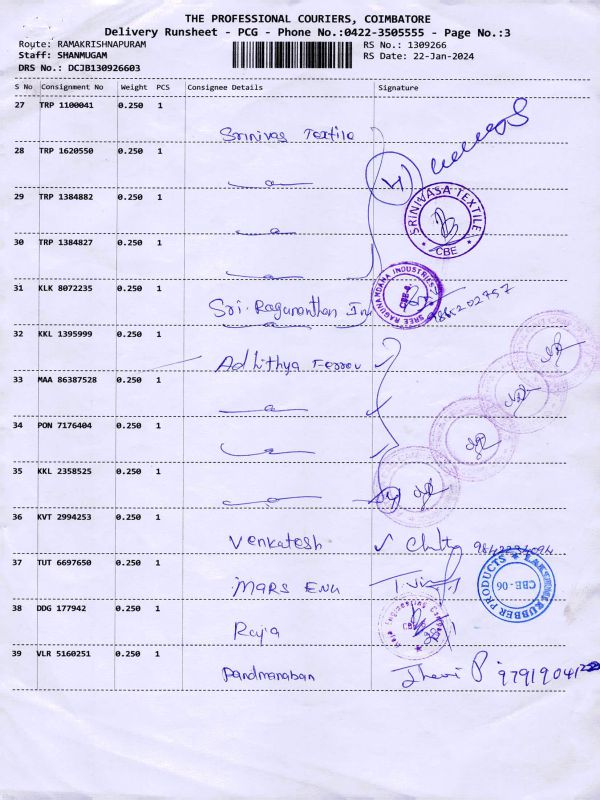 THE PROFESSIONAL COURIERS, COIMBATORE
Delivery Runsheet - PCG - Phone No.:0422-3505555 - Page No.:3
Route: RAMAKRISHNAPURAM RS No.: 1309266
Staff: SHANMUGAM RS Date: 22-Jan-2024
DRS No.: DCJB130926603
S No Consignment No Weight PCS Consignee Details Signature
27 TRP 1100041 0.250 1
Srinivas Textile
28 TRP 1620550 0.250 1
4
29 TRP 1384882 0.250 1
SRINIVASA TEXTILE
CBE
30 TRP 1384827 0.250 1
31 KLK 8072235 0.250 1
SREE RAGUNANDANA INDUSTRIES
Sri. Ragunanthan Ind
32 KKL 1395999 0.250 1
Adhithya Ferrou
33 MAA 86387528 0.250 1
34 PON 7176404 0.250 1
35 KKL 2358525 0.250 1
36 KVT 2994253 0.250 1
Venkatesh
37 TUT 6697650 0.250 1
RUBBER PRODUCTS
CBE-06
MARS ENG
38 DDG 177942 0.250 1
Raja Engineering Company
Raja
39 VLR 5160251 0.250 1
Pandmanaban